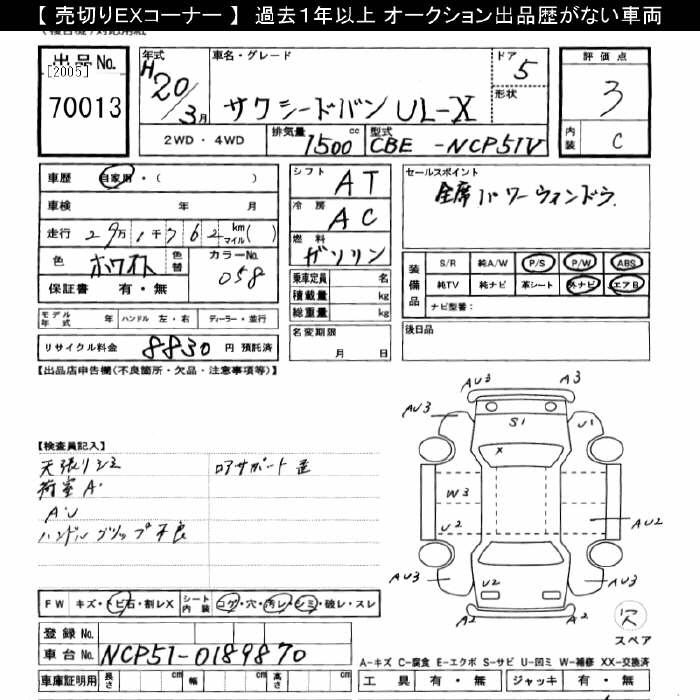 【 売切りEXコーナー 】 過去1年以上 オークション出品歴がない車両
出品No.
[2005]
70013
年式
H20/3月
車名・グレード
サクシードバン UL-X
ドア
5
形状
評価点
3
内装
C
2WD・4WD
排気量
1500 cc
型式
CBE -NCP51V
車歴 自家用・( )
車検 年 月
走行 29万1千762 km マイル( )
色 ホワイト 色替
カラーNo.
058
保証書 有・無
シフト AT
冷房 AC
燃料 ガソリン
乗車定員 名
積載量 kg
総重量 kg
セールスポイント
全席パワーウィンドウ
装備品
S/R 純A/W P/S P/W ABS
純TV 純ナビ 革シート 外ナビ エアB
ナビ型番:
モデル年式 年 ハンドル 左・右 ディーラー・並行
リサイクル料金 8830 円 預託済
名変期限
月 日
後日品
【出品店申告欄(不良箇所・欠品・注意事項等)】
【検査員記入】
天張りシミ
荷室A・
AU
ハンドルグリップ不良
ロアサポート歪
AU3 A3
AU3 S1 U1
X
W3
U2 AU2
AU3 U2 AU3
A2 A2
穴
スペア
FW キズ・トビ石・割レX シート内装 コゲ・穴・汚レ・シミ・破レ・スレ
登録No.
車台No. NCP51-0189870
車庫証明用 長さ cm 幅 cm 高さ cm
A-キズ C-腐食 E-エクボ S-サビ U-凹ミ W-補修 XX-交換済
工具 有・無 ジャッキ 有・無